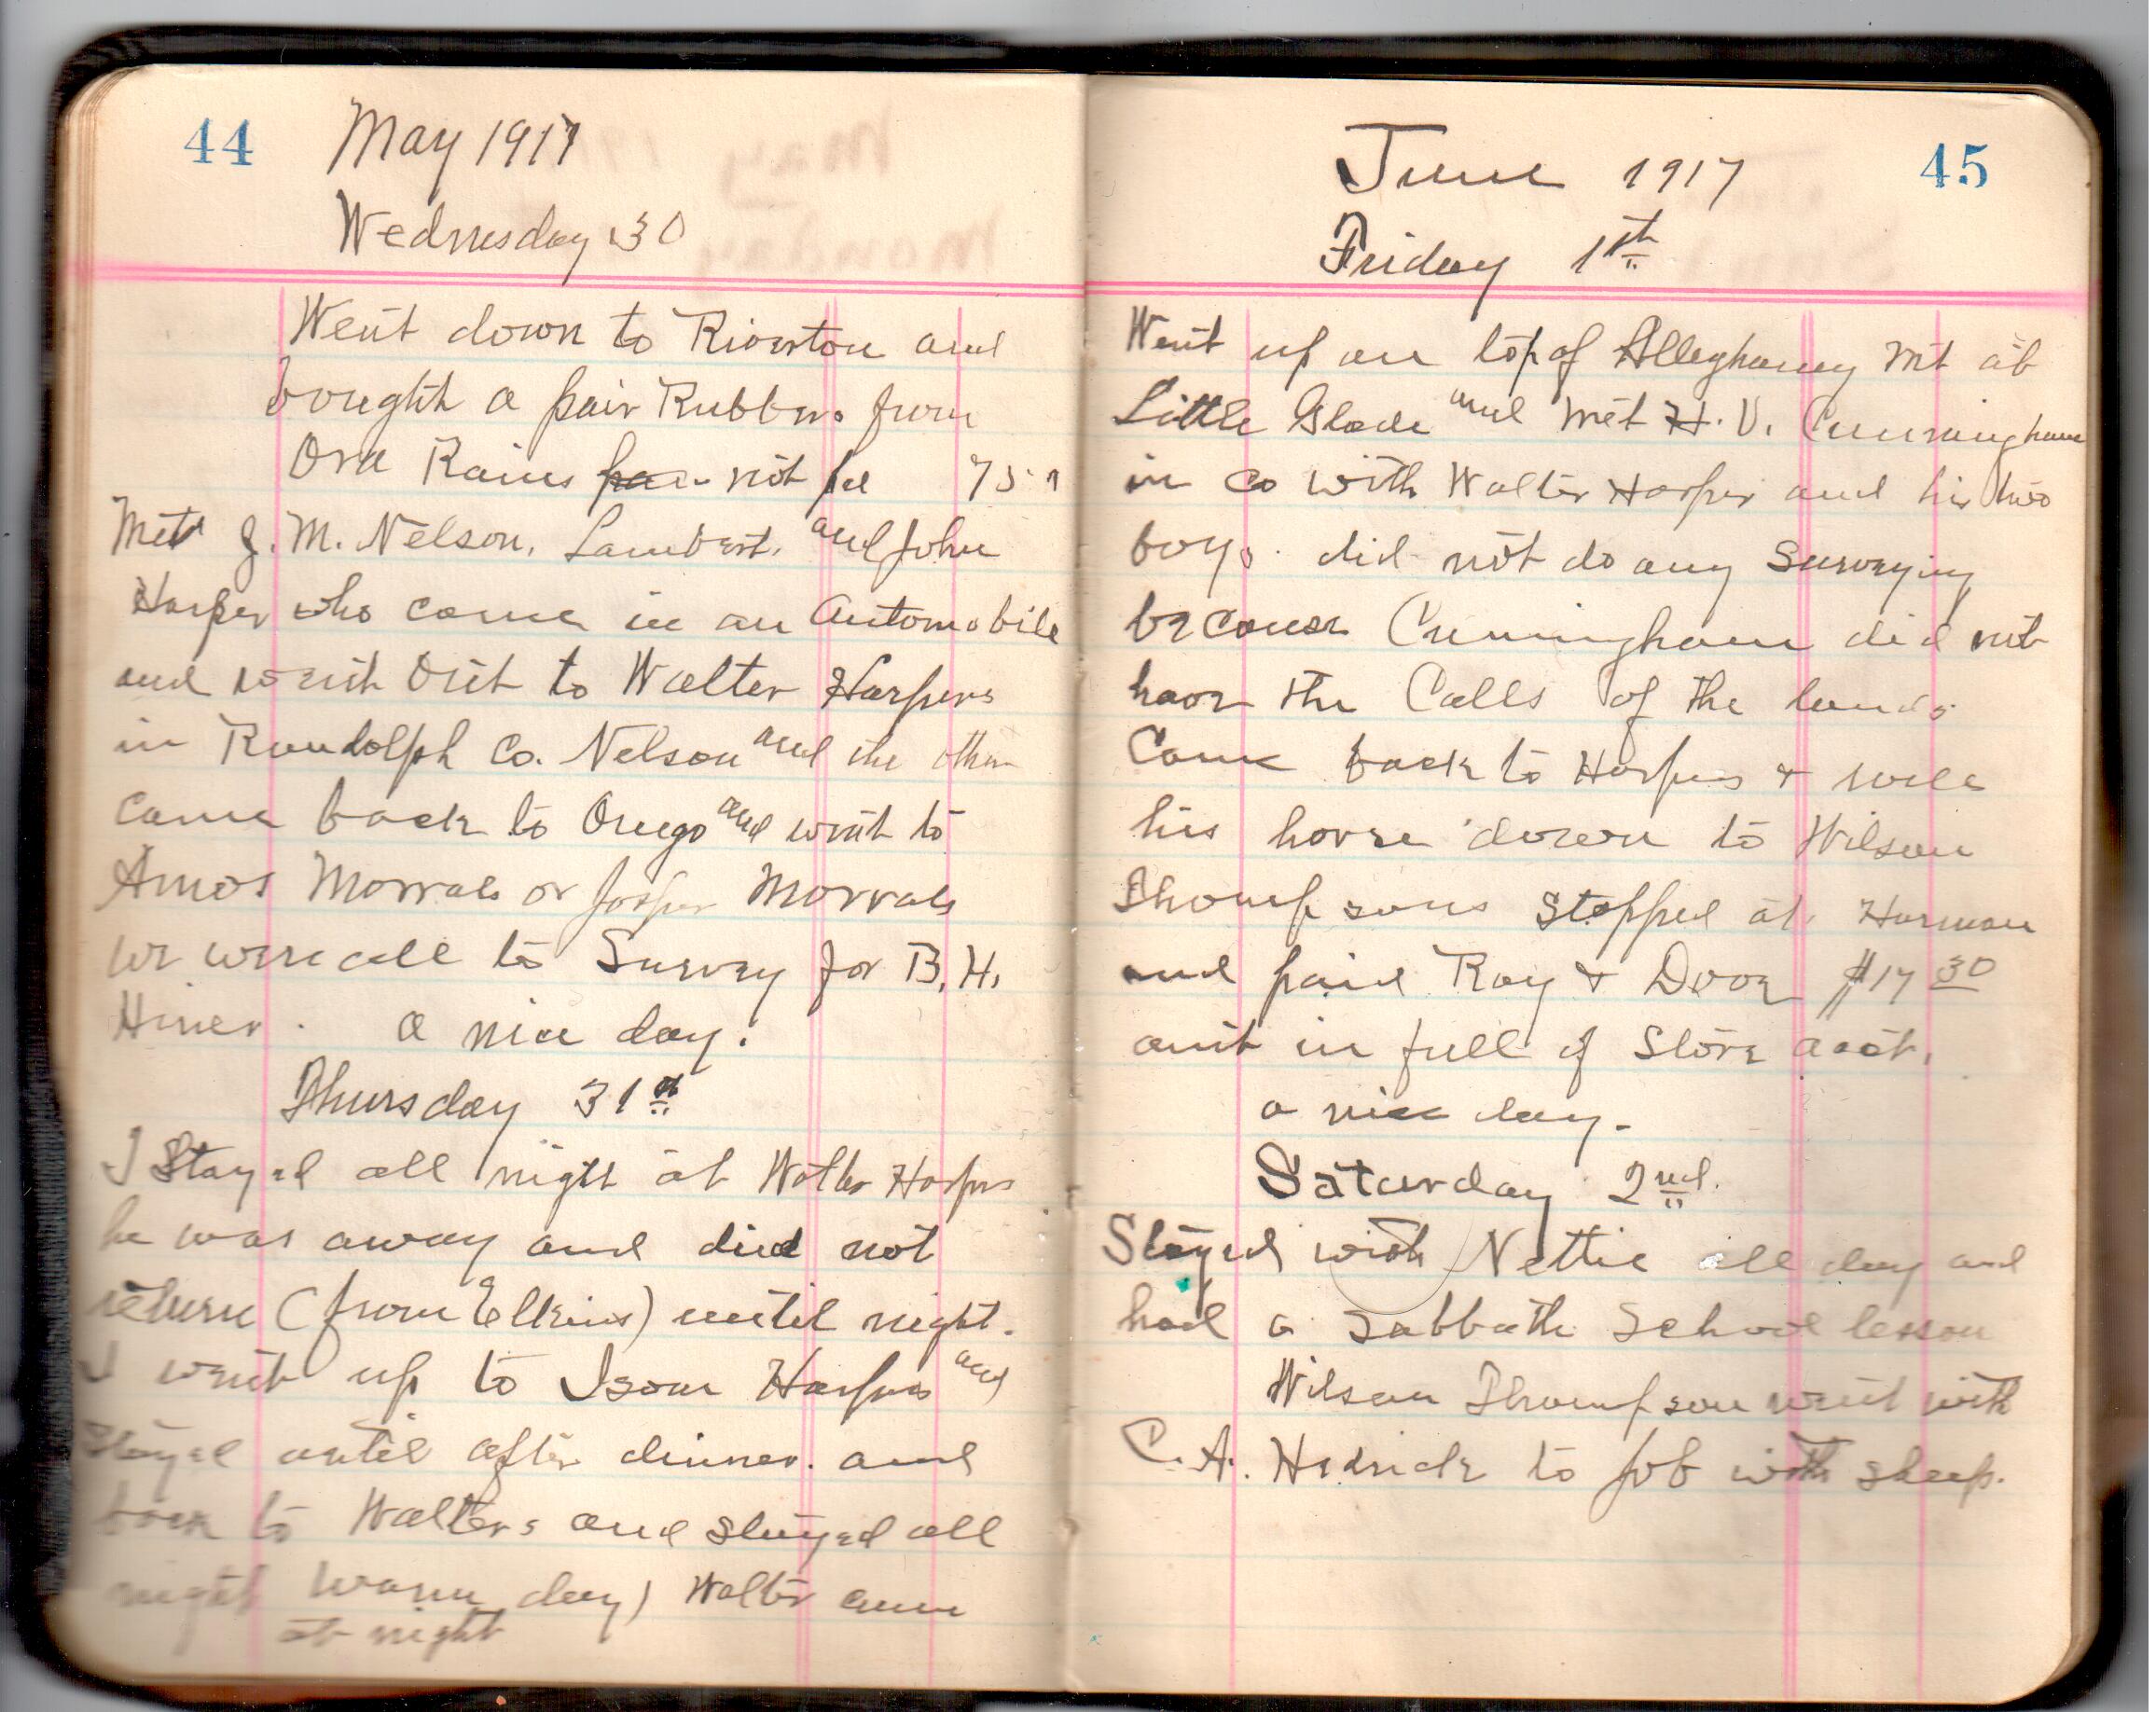 44
May 1917
Wednesday 30
Went down to Riverton and
bought a pair Rubbers from
Ora Rains not pd 75
Met J. M. Nelson, Lambert, and John
Harper who came in an Automobile
and went out to Walter Harpers
in Randolph Co. Nelson and the other
came back to Onego and went to
Amos Morrals or Jasper Morrals
we were all to Survey for B. H.
Hiner. a nice day.
Thursday 31st
I Stayed all night at Walter Harpers
he was away and did not
return (from Elkins) until night.
I went up to Isom Harpers and
stayed until after dinner. and
back to Walters and stayed all
night warm day) Walter came
at night
45
June 1917
Friday 1st
Went up on top of Alleghany Mt at
Little Glade and met H. V. Cunningham
in co with Walter Harper and his two
boys. did not do any Surveying
because Cunningham did not
have the Calls of the lands
Came back to Harpers &
his horse down to Wilson
Thompsons Stopped at Harman
and paid Roy & Dove $17 30
amt in full of Store acct.
a nice day.
Saturday 2nd.
Stayed with Nettie all day and
had a Sabbath School lesson
Wilson Thompson went with
C. A. Hedrick to Job with sheep.